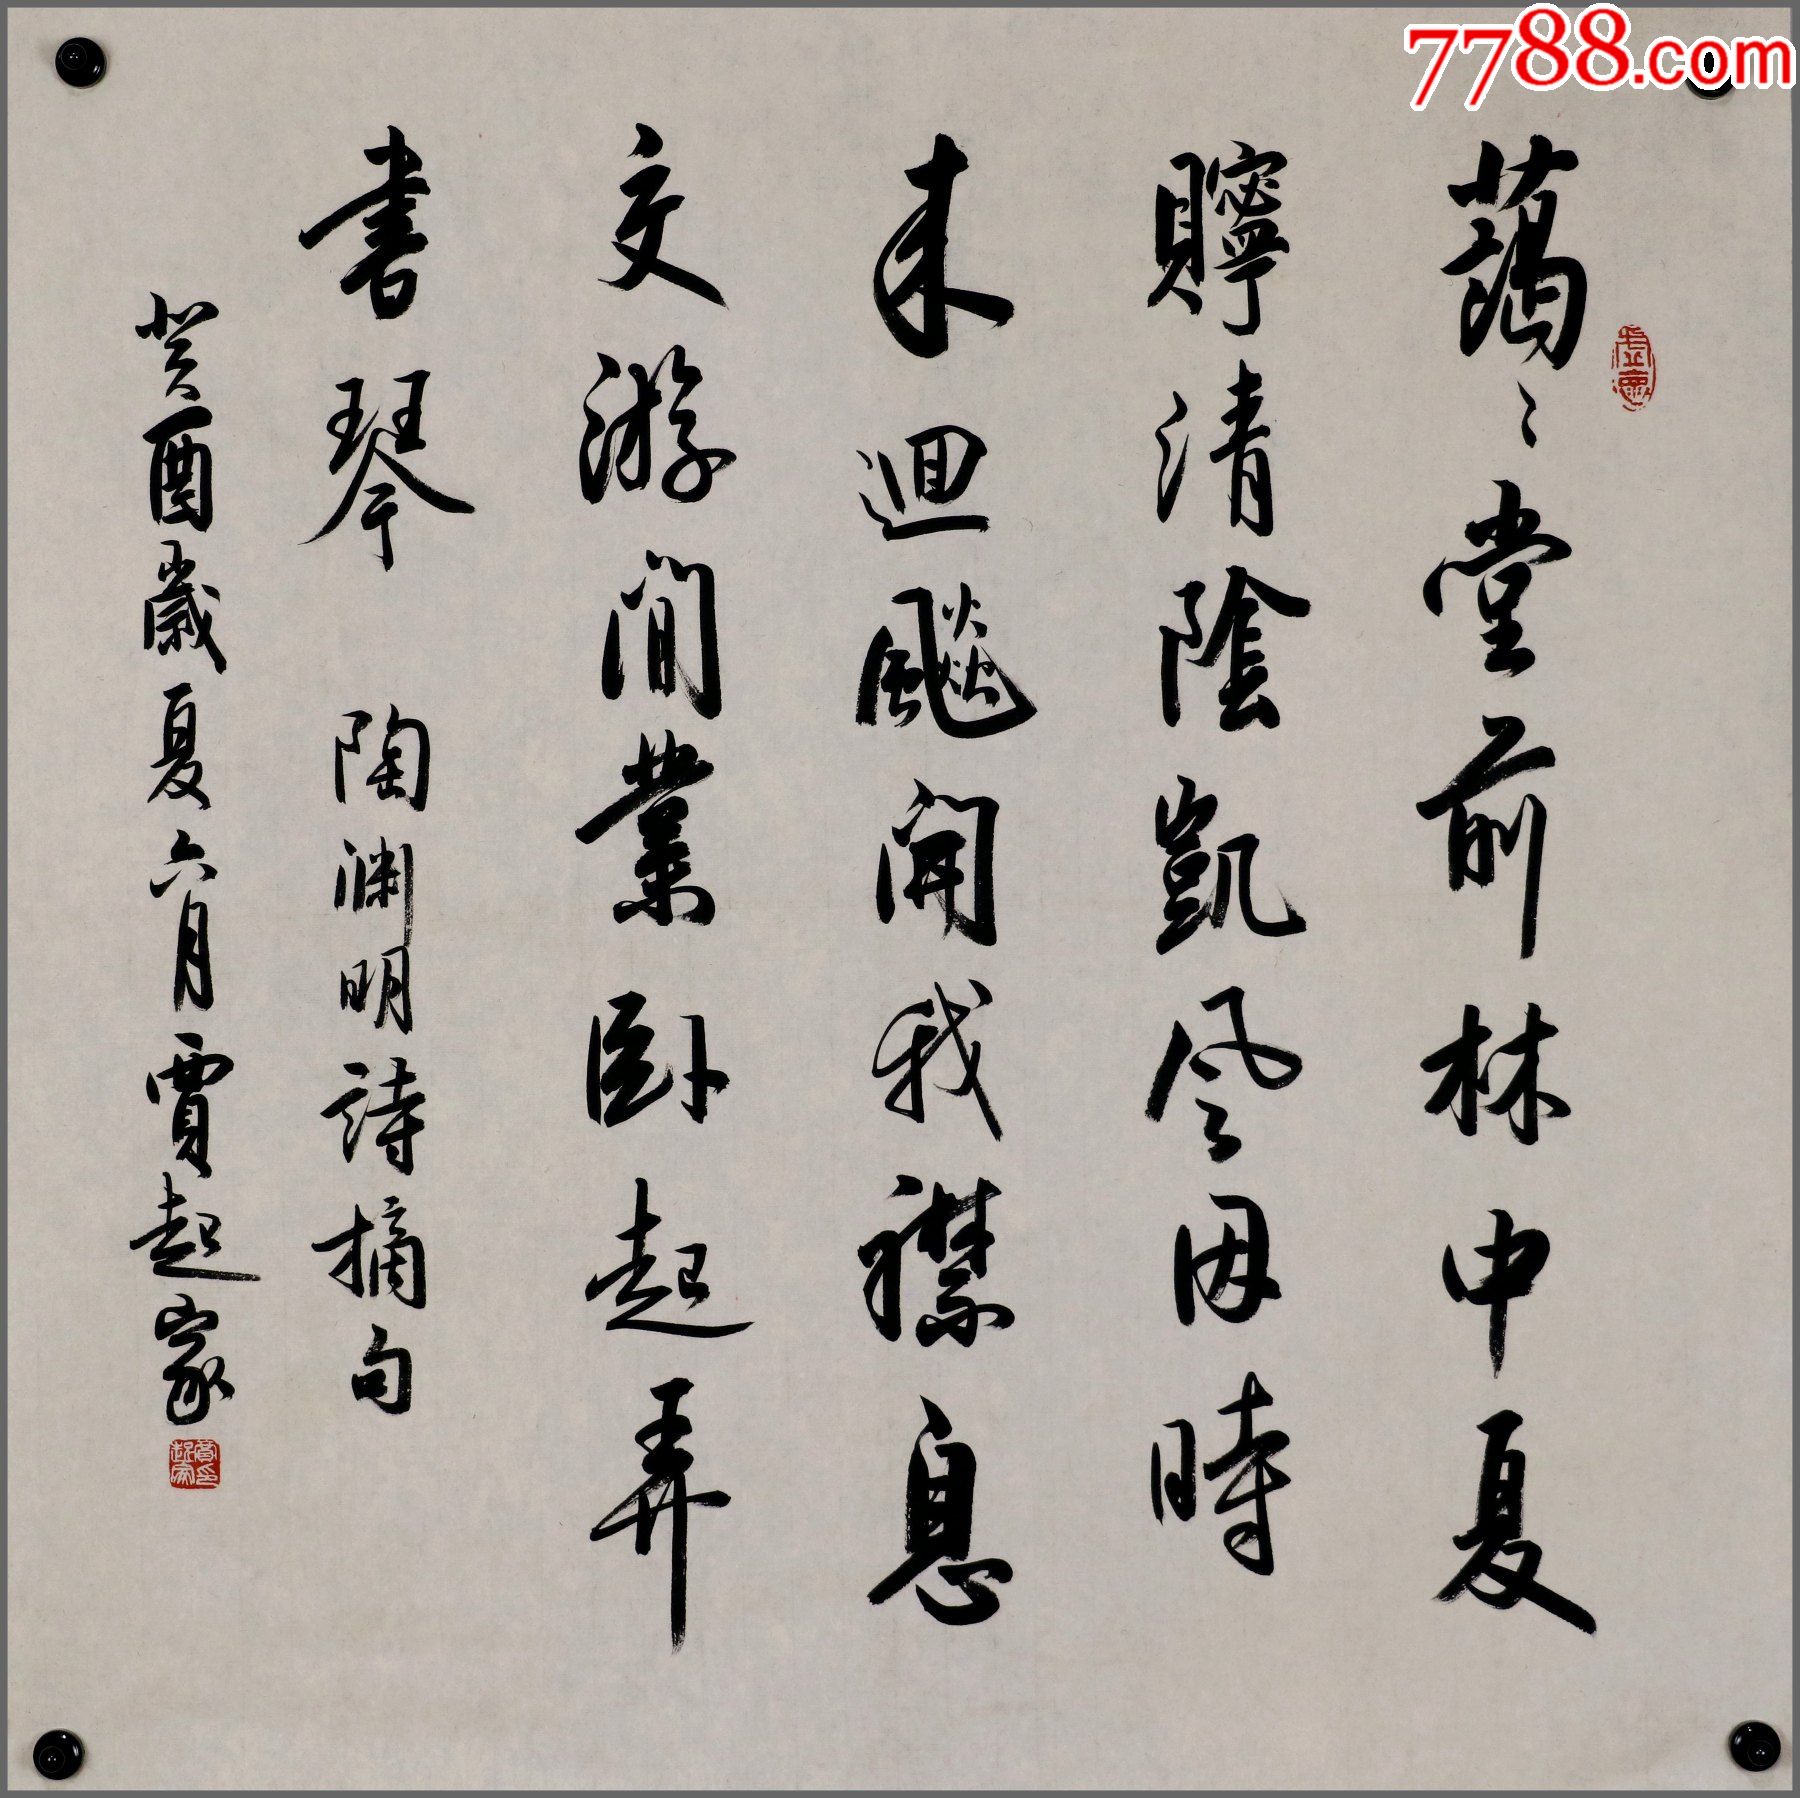 7788.com
藹〻堂前林中夏
清陰凱風因時
来迴飈開我襟息
交游閒業卧起弄
書琴 陶渊明詩摘句
癸酉歲夏六月賈起家